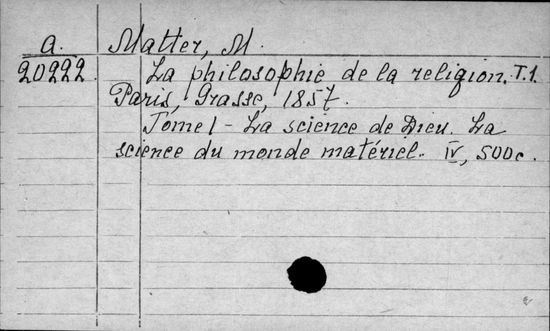 a. Matter, M.
20222. La philosophie de la religion. T.1.
Paris, Grasse, 1857.
Tome I - La science de Dieu. La
science du monde matériel. IV, 500c.